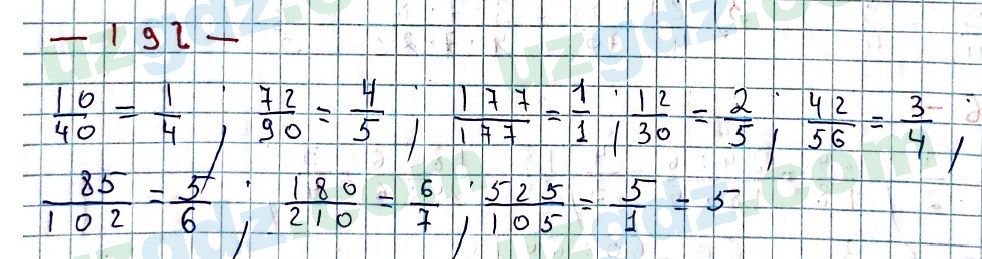 — 192 —
10/40 = 1/4 ; 72/90 = 4/5 ; 177/177 = 1/1 ; 12/30 = 2/5 ; 42/56 = 3/4 ;
85/102 = 5/6 ; 180/210 = 6/7 ; 525/105 = 5/1 = 5
uzgdz.com